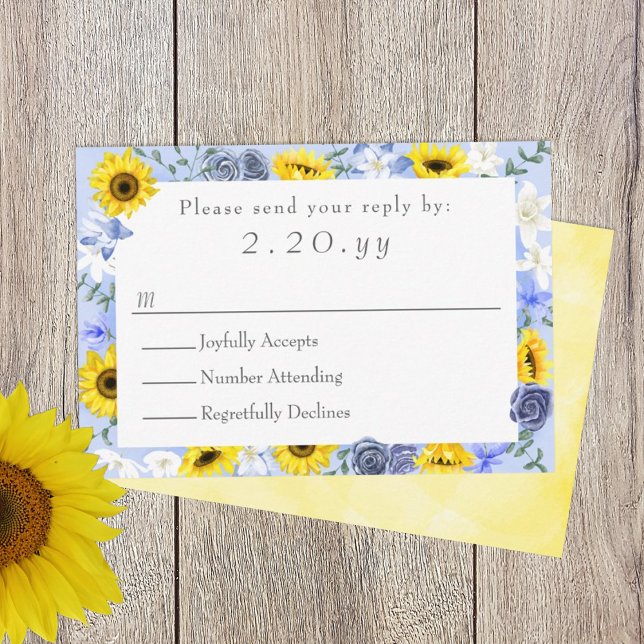 Please send your reply by:
2.20.yy
M
Joyfully Accepts
Number Attending
Regretfully Declines